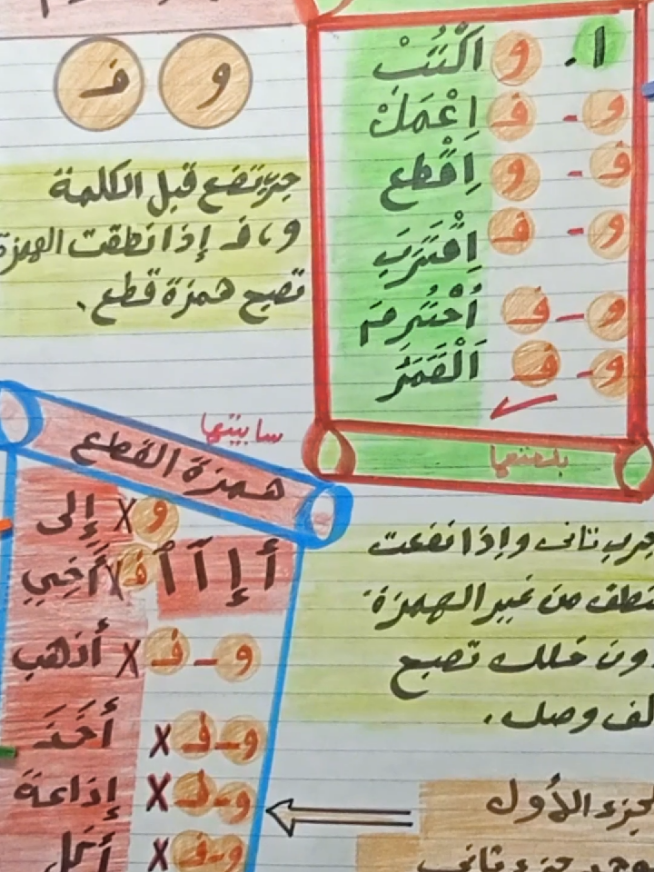 ا. و اَكْتُبْ
و - ف اِعْمَلْ
ف - و اِقْطع
و - ف اِقْتَرَبَ
و - ف اُحْتُرِمَ
و - ف اَلْقَمَرُ
بلعتها
و ف
جرب تضع قبل الكلمة
و، ف إذا نطقت الهمزة
تصبح همزة قطع.
سابيتها
همزة القطع
أ إ آ أ
و X إلى
ف X أَخِي
و - ف X أذهب
و - ف X أَخَذَ
و - ف X إذاعة
و - ف X أكل
جرب ثاني وإذا نفعت
تنطق من غير الهمزة
دون خلل تصبح
ألف وصل.
الجزء الأول
يوجد جزء ثاني